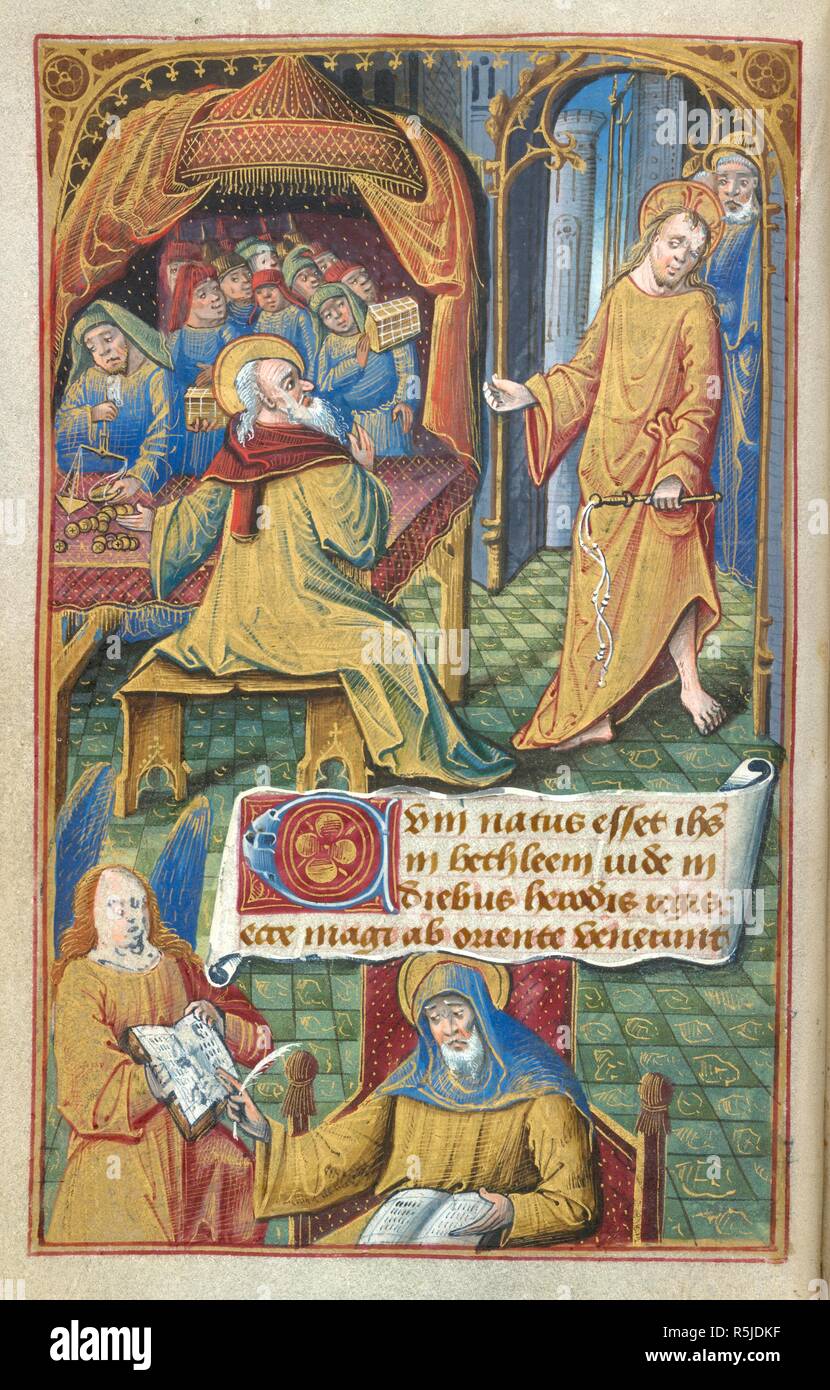 Cum natus esset ihs
in bethleem iude in
diebus herodis regis
ecce magi ab oriente venerunt
alamy
Image ID: R5JDKF
www.alamy.com